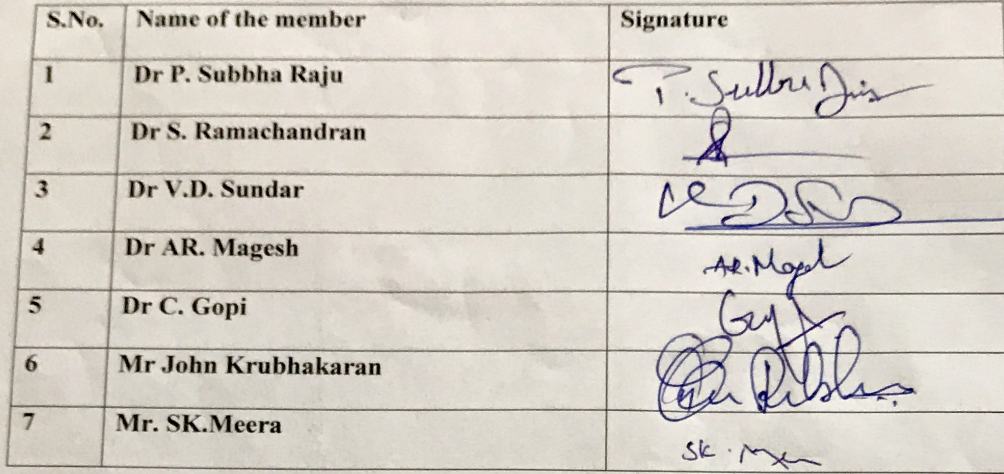 S.No. Name of the member Signature
1 Dr P. Subbha Raju
2 Dr S. Ramachandran
3 Dr V.D. Sundar
4 Dr AR. Magesh AR. Magesh
5 Dr C. Gopi
6 Mr John Krubhakaran
7 Mr. SK.Meera SK.